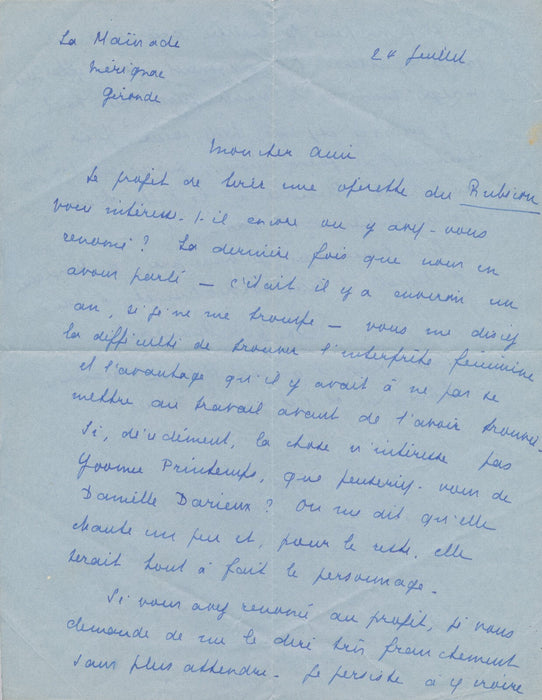 La Maïnade
Mérignac
Gironde
24 juillet
Mon cher ami
Le projet de tirer une opérette du Rubicon
vous intéresse-t-il encore ou y avez-vous
renoncé ? La dernière fois que nous en
avons parlé — c'était il y a environ un
an, si je ne me trompe — vous me disiez
la difficulté de trouver l'interprète féminine
et l'avantage qu'il y avait à ne pas se
mettre au travail avant de l'avoir trouvée.
Si, décidément, la chose n'intéresse pas
Yvonne Printemps, que penseriez-vous de
Danielle Darieux ? On me dit qu'elle
chante un peu et, pour le reste, elle
serait tout à fait le personnage.
Si vous avez renoncé au projet, je vous
demande de me le dire très franchement
sans plus attendre. Je persiste à y croire